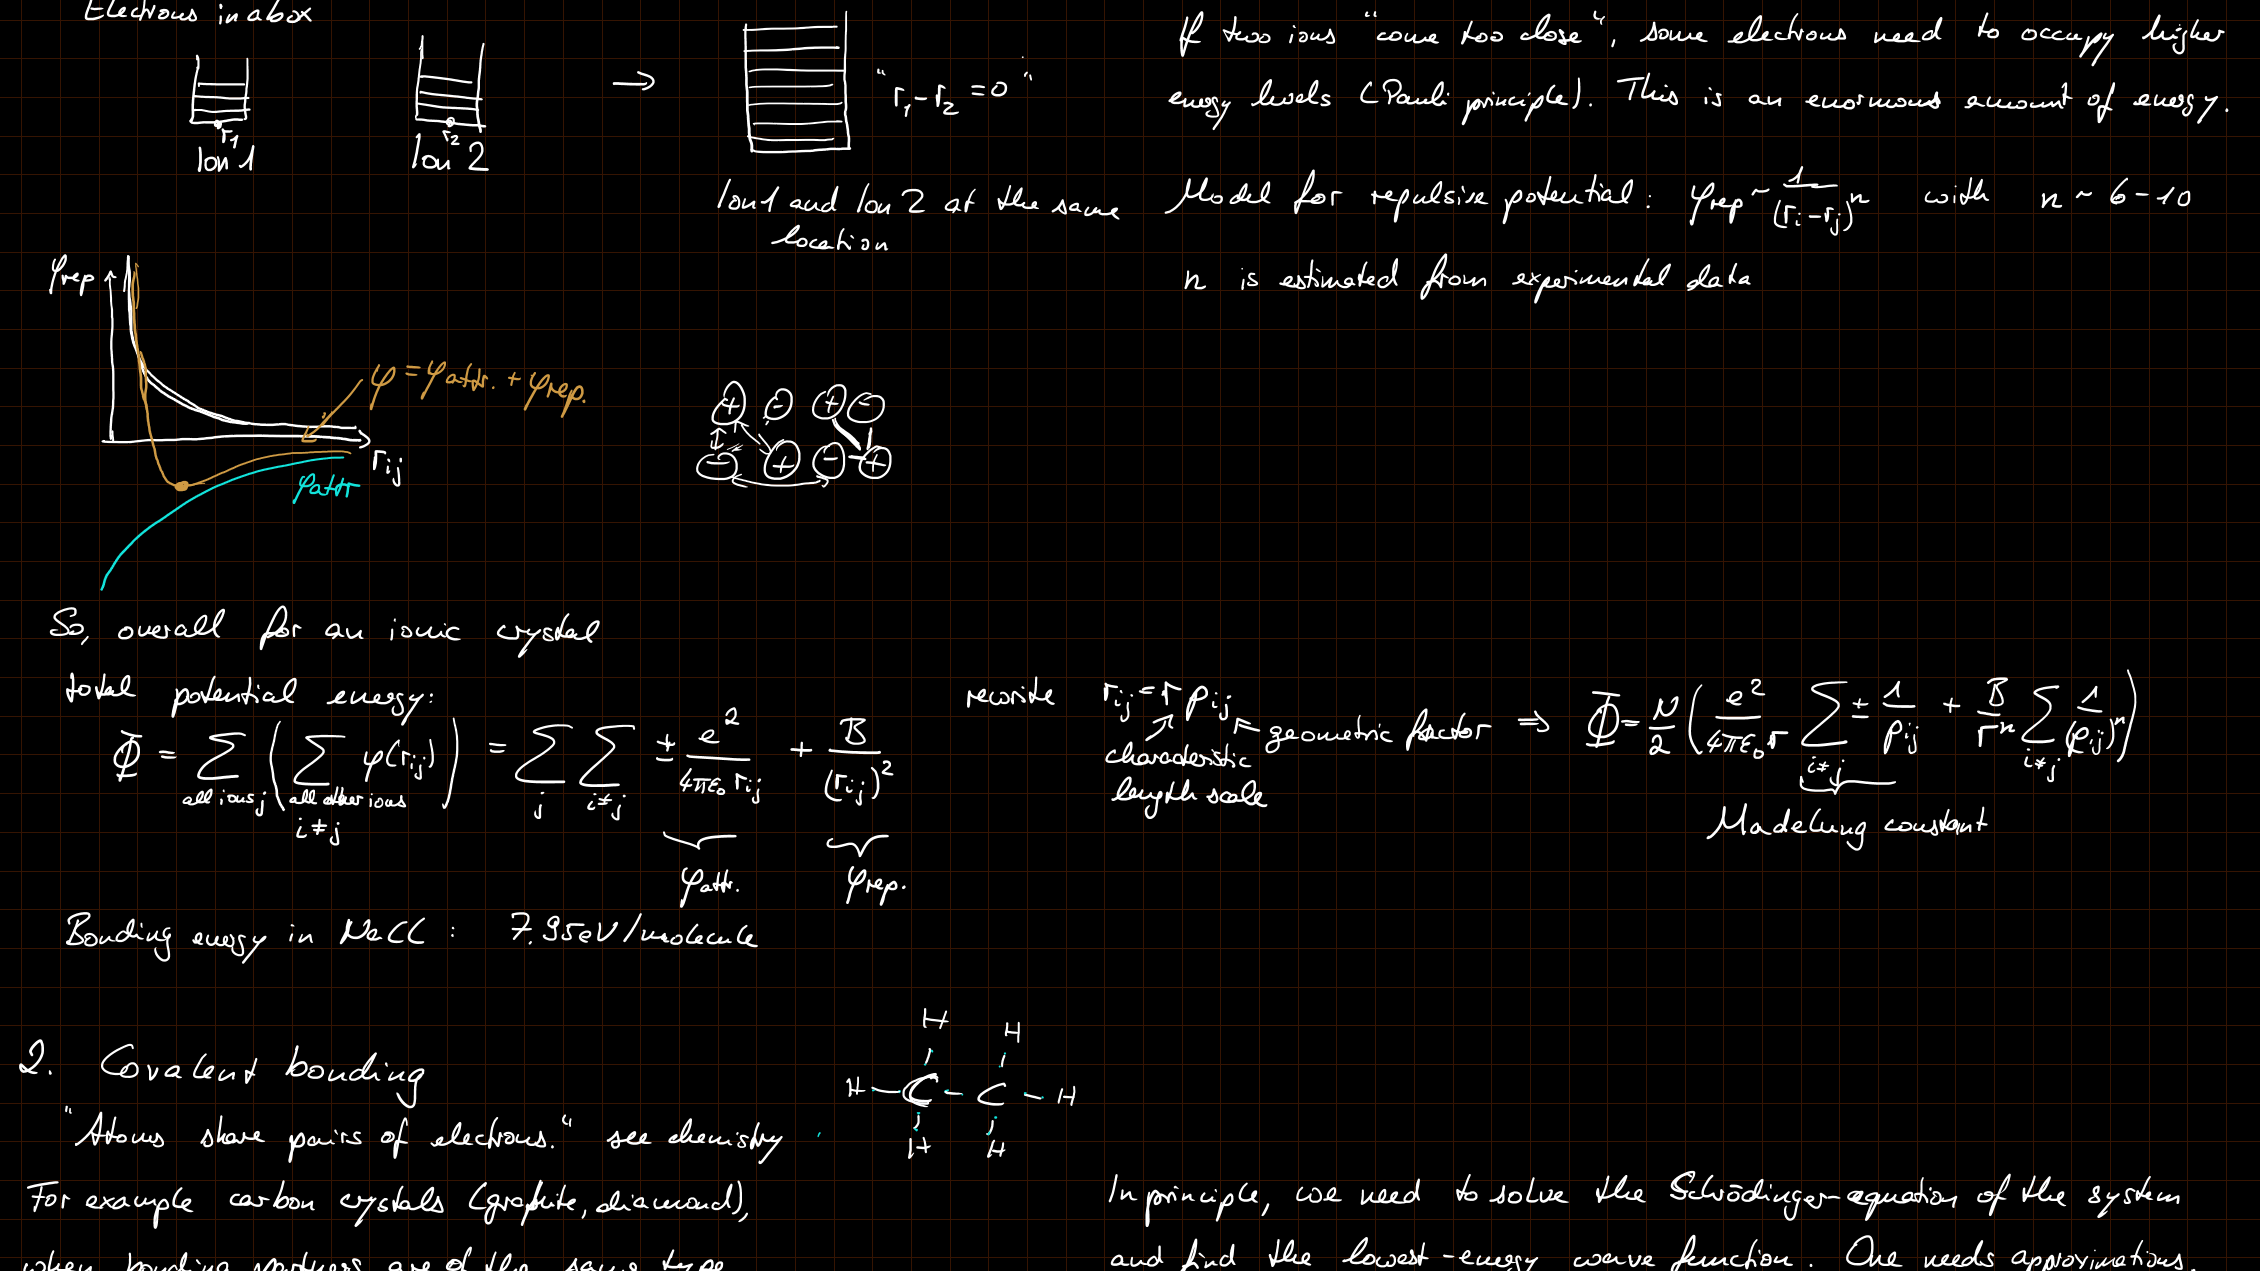 Electrons in a box
r₁
Ion 1
r₂
Ion 2
→
"r₁-r₂ = 0"
Ion 1 and Ion 2 at the same
location
If two ions "come too close", some electrons need to occupy higher
energy levels (Pauli principle). This is an enormous amount of energy.
Model for repulsive potential: φrep ~ 1/(ri-rj)^n with n ~ 6-10
n is estimated from experimental data
φrep
φ = φattr. + φrep.
rij
φattr
+ - + -
- + - +
So, overall for an ionic crystal
total potential energy:
Φ = Σ (Σ φ(rij)) = Σ Σ ± e²/(4πε₀ rij) + B/(rij)²
all ions j
all other ions
i≠j
j
i≠j
φattr.
φrep.
rewrite rij = r ρij
characteristic
length scale
geometric factor
⇒ Φ = N/2 (e²/(4πε₀r) Σ ± 1/ρij + B/r^n Σ 1/(ρij)^n)
i≠j
i≠j
Madelung constant
Bonding energy in NaCl: 7.95eV/molecule
2. Covalent bonding
"Atoms share pairs of electrons." see chemistry
H H
H-C-C-H
H H
For example carbon crystals (graphite, diamond),
when bonding partners are of the same type
In principle, we need to solve the Schrödinger-equation of the system
and find the lowest-energy wave function. One needs approximations.